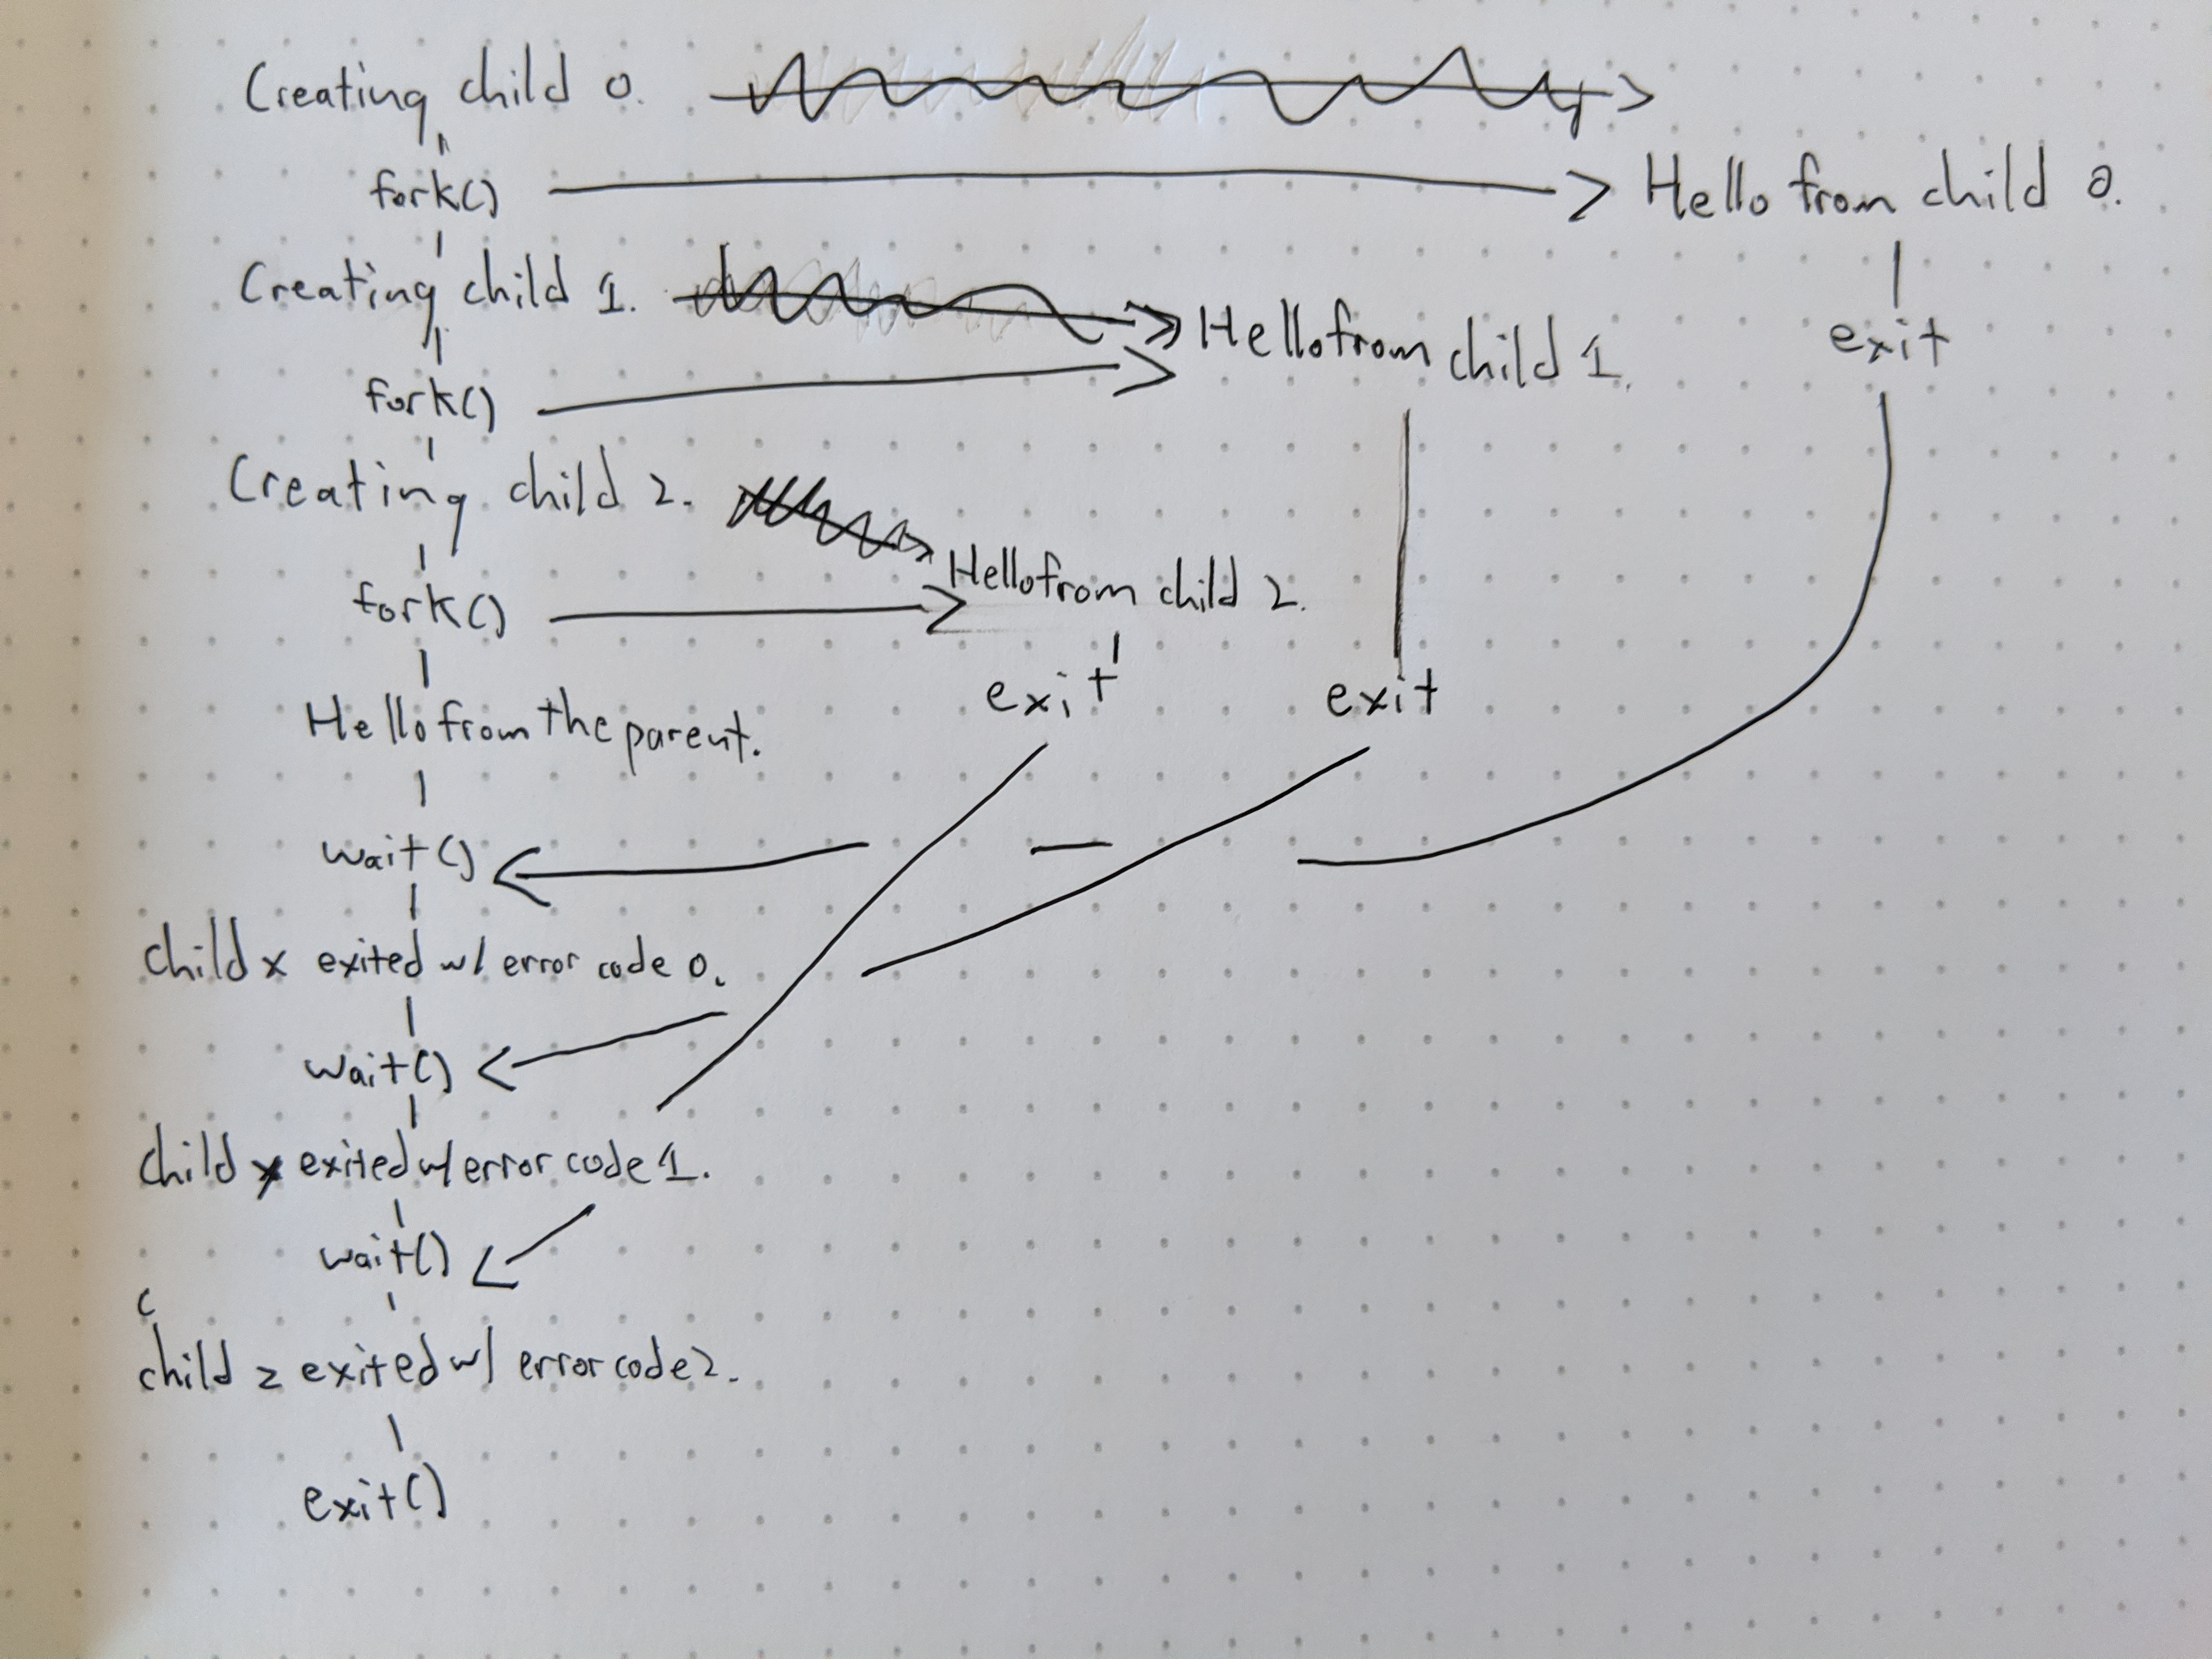 Creating child 0.
fork()
Hello from child 0.
Creating child 1.
Hello from child 1.
exit
fork()
Creating child 2.
Hello from child 2.
fork()
exit
exit
Hello from the parent.
wait()
child x exited w/ error code 0.
wait()
child x exited w/ error code 1.
wait()
c
child z exited w/ error code 2.
exit()